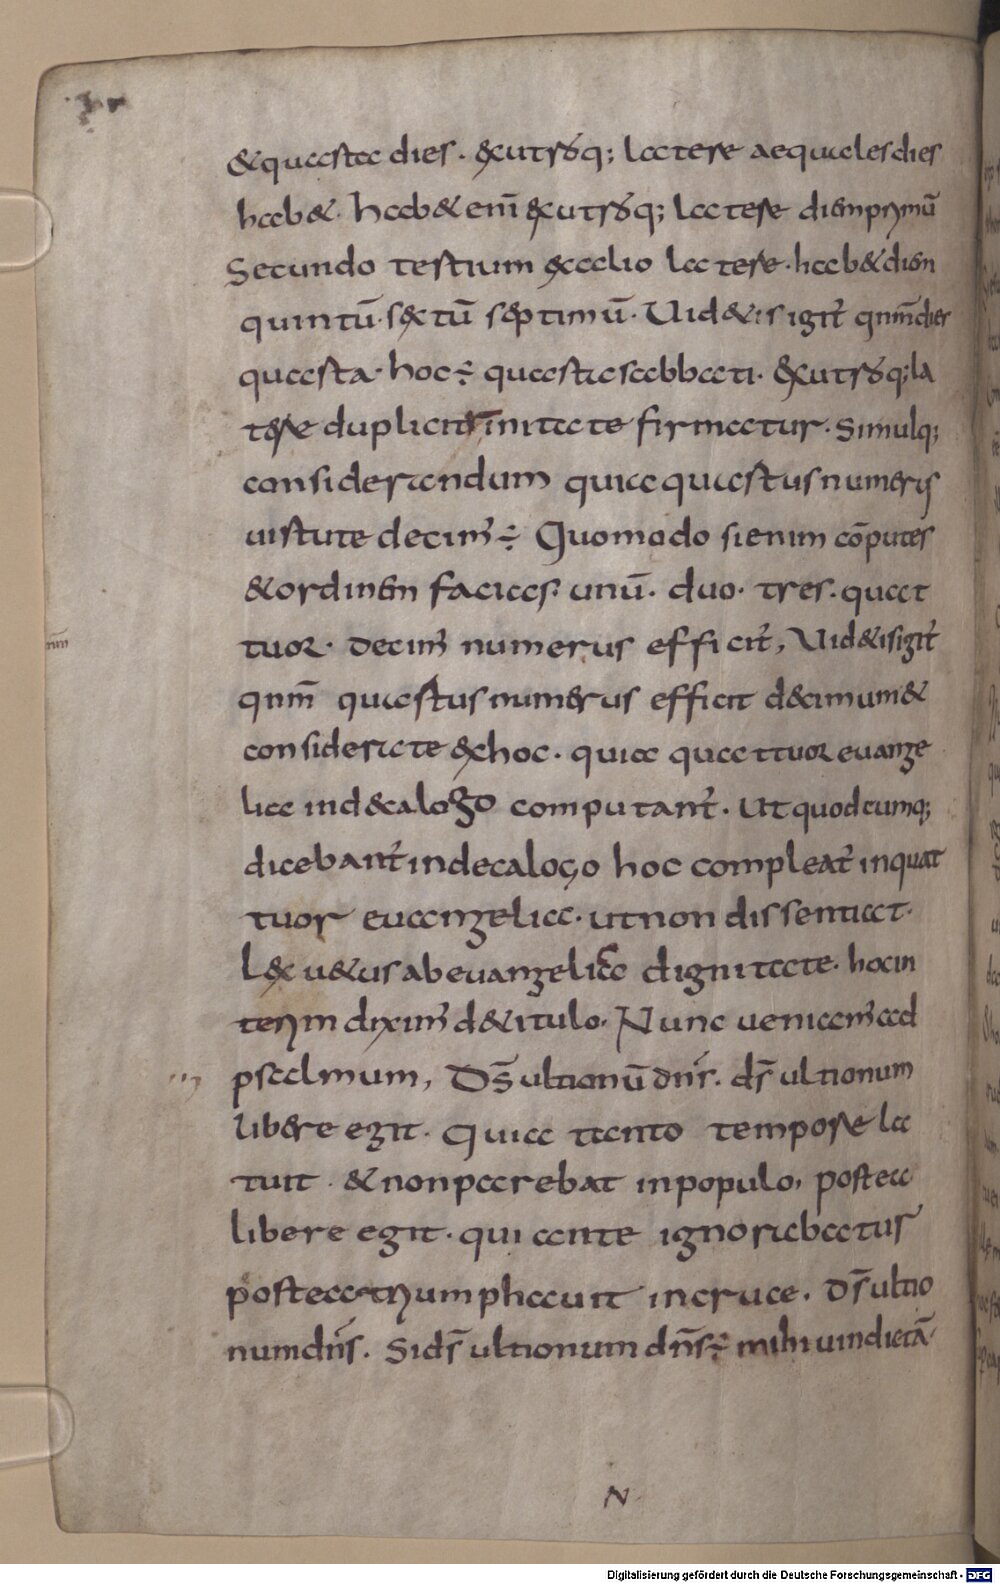 & quarta dies. ex utraq; latere aequales dies
hab&. hab& eni ex utraq; latere diem primū
Secundo tertium ex alio latere. hab& diem
quintū. sextū septimū. Uid& igit qnm dies
quarta. hoc ÷ quarta sabbati. ex utraq; la
tere duplici trinitate firmatur. Simulq;
considerandum quia quartus numeris
uirtute decim ÷ Quomodo si enim cōputes
& ordinem facias. unū. duo. tres. quat
tuor. decim numerus efficit, Uid& igit
qnm quartus numerus efficit decimum &
considerate ex hoc. quia quattuor euange
lia in decalogo computant. Ut quodcumq;
dicebant in decalogo hoc compleat in quat
tuor euangelia. ut non dissentiat.
Lex uetus ab euangelica dignitate. hoc in
terim diximus de titulo. Nunc ueniamus ad
psalmum, Ds ultionū dns. ds ultionum
libere egit. Quia tanto tempore la
tuit & non parebat in populo, postea
libere egit. qui ante ignorabatur
postea triumphauit in cruce. Ds ultio
num dns. Si ds ultionum dns ÷ mihi uindictā
N
Digitalisierung gefördert durch die Deutsche Forschungsgemeinschaft - DFG